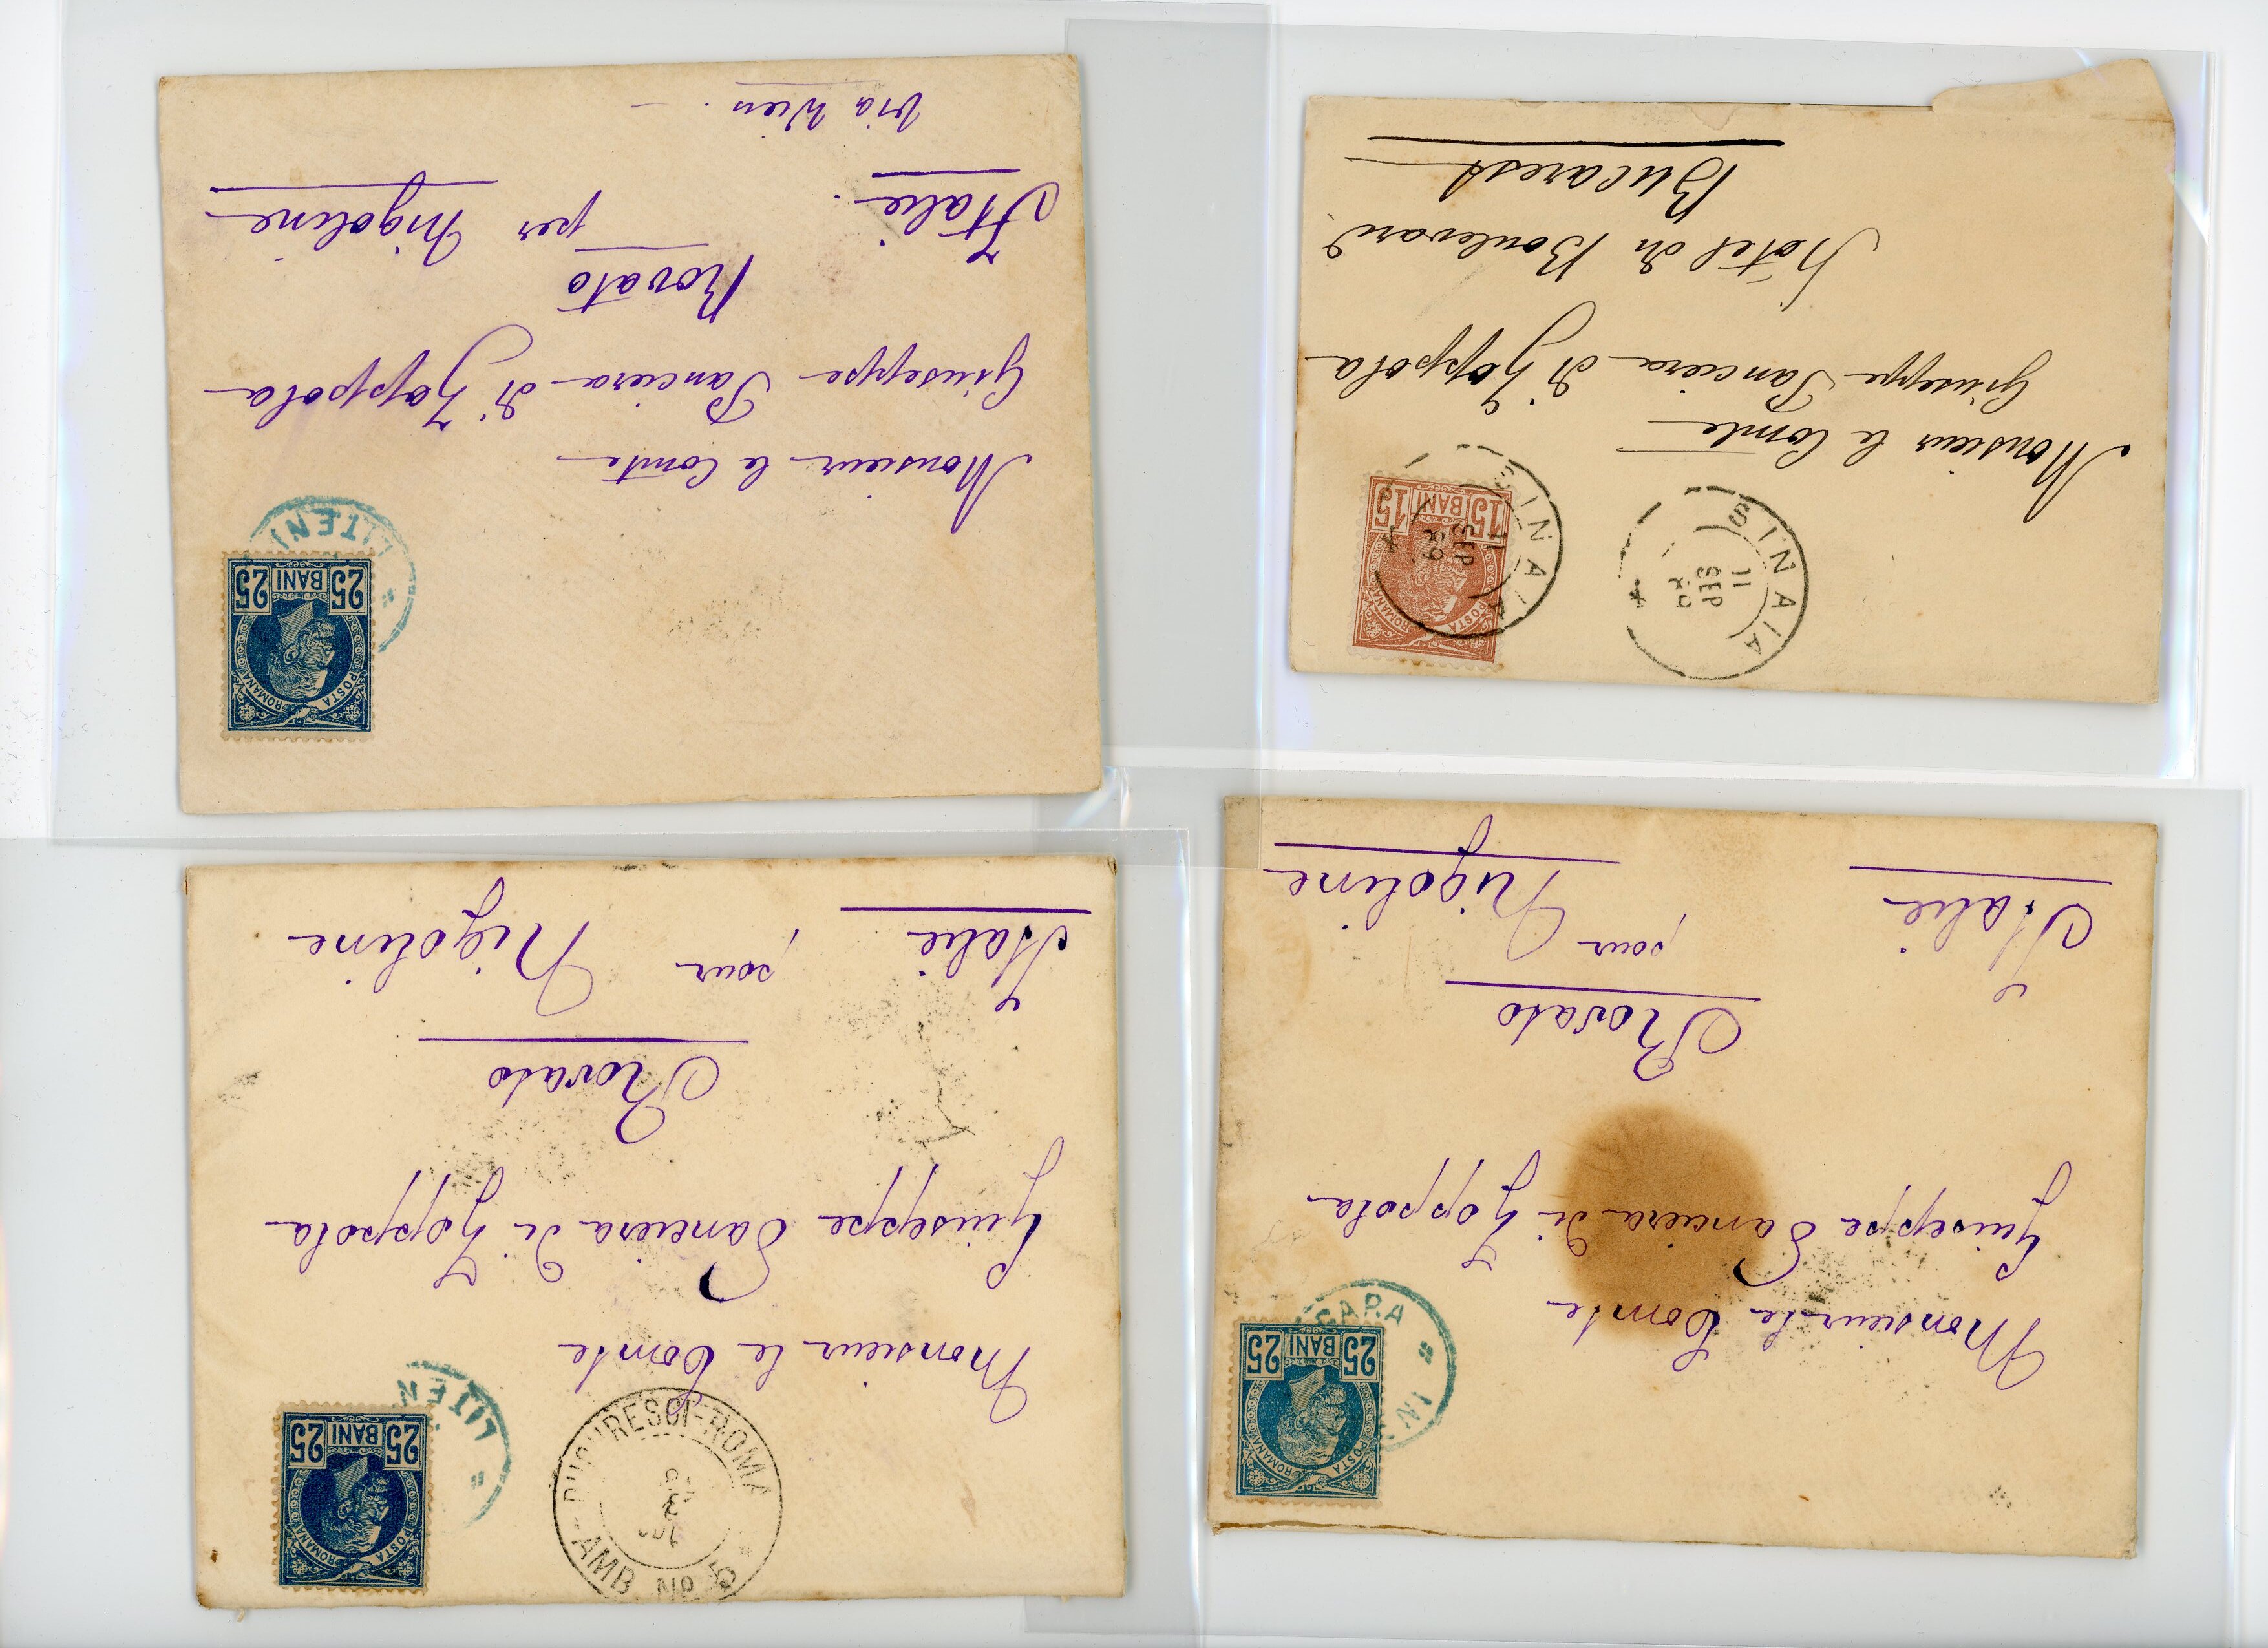 POSTA ROMANA
25 BANI 25
GARA
Monsieur le Comte
Giuseppe Panciera di Zoppola
Rovato
Italie pour Nigoline
BUCURESCI-ROMAN
AMB. NR. 5
JUL
3
POSTA ROMANA
25 BANI 25
LITEN
Monsieur le Comte
Giuseppe Panciera di Zoppola
Rovato
Italie pour Nigoline
SINAIA
11
SEP
SINAIA
11
SEP
89
POSTA ROMANA
15 BANI 15
Monsieur le Comte
Giuseppe Panciera di Zoppola
Hôtel du Boulevard
Bucarest
POSTA ROMANA
25 BANI 25
LITENI
Monsieur le Comte
Giuseppe Panciera di Zoppola
Rovato
Italie. per Nigoline
via Wien. —